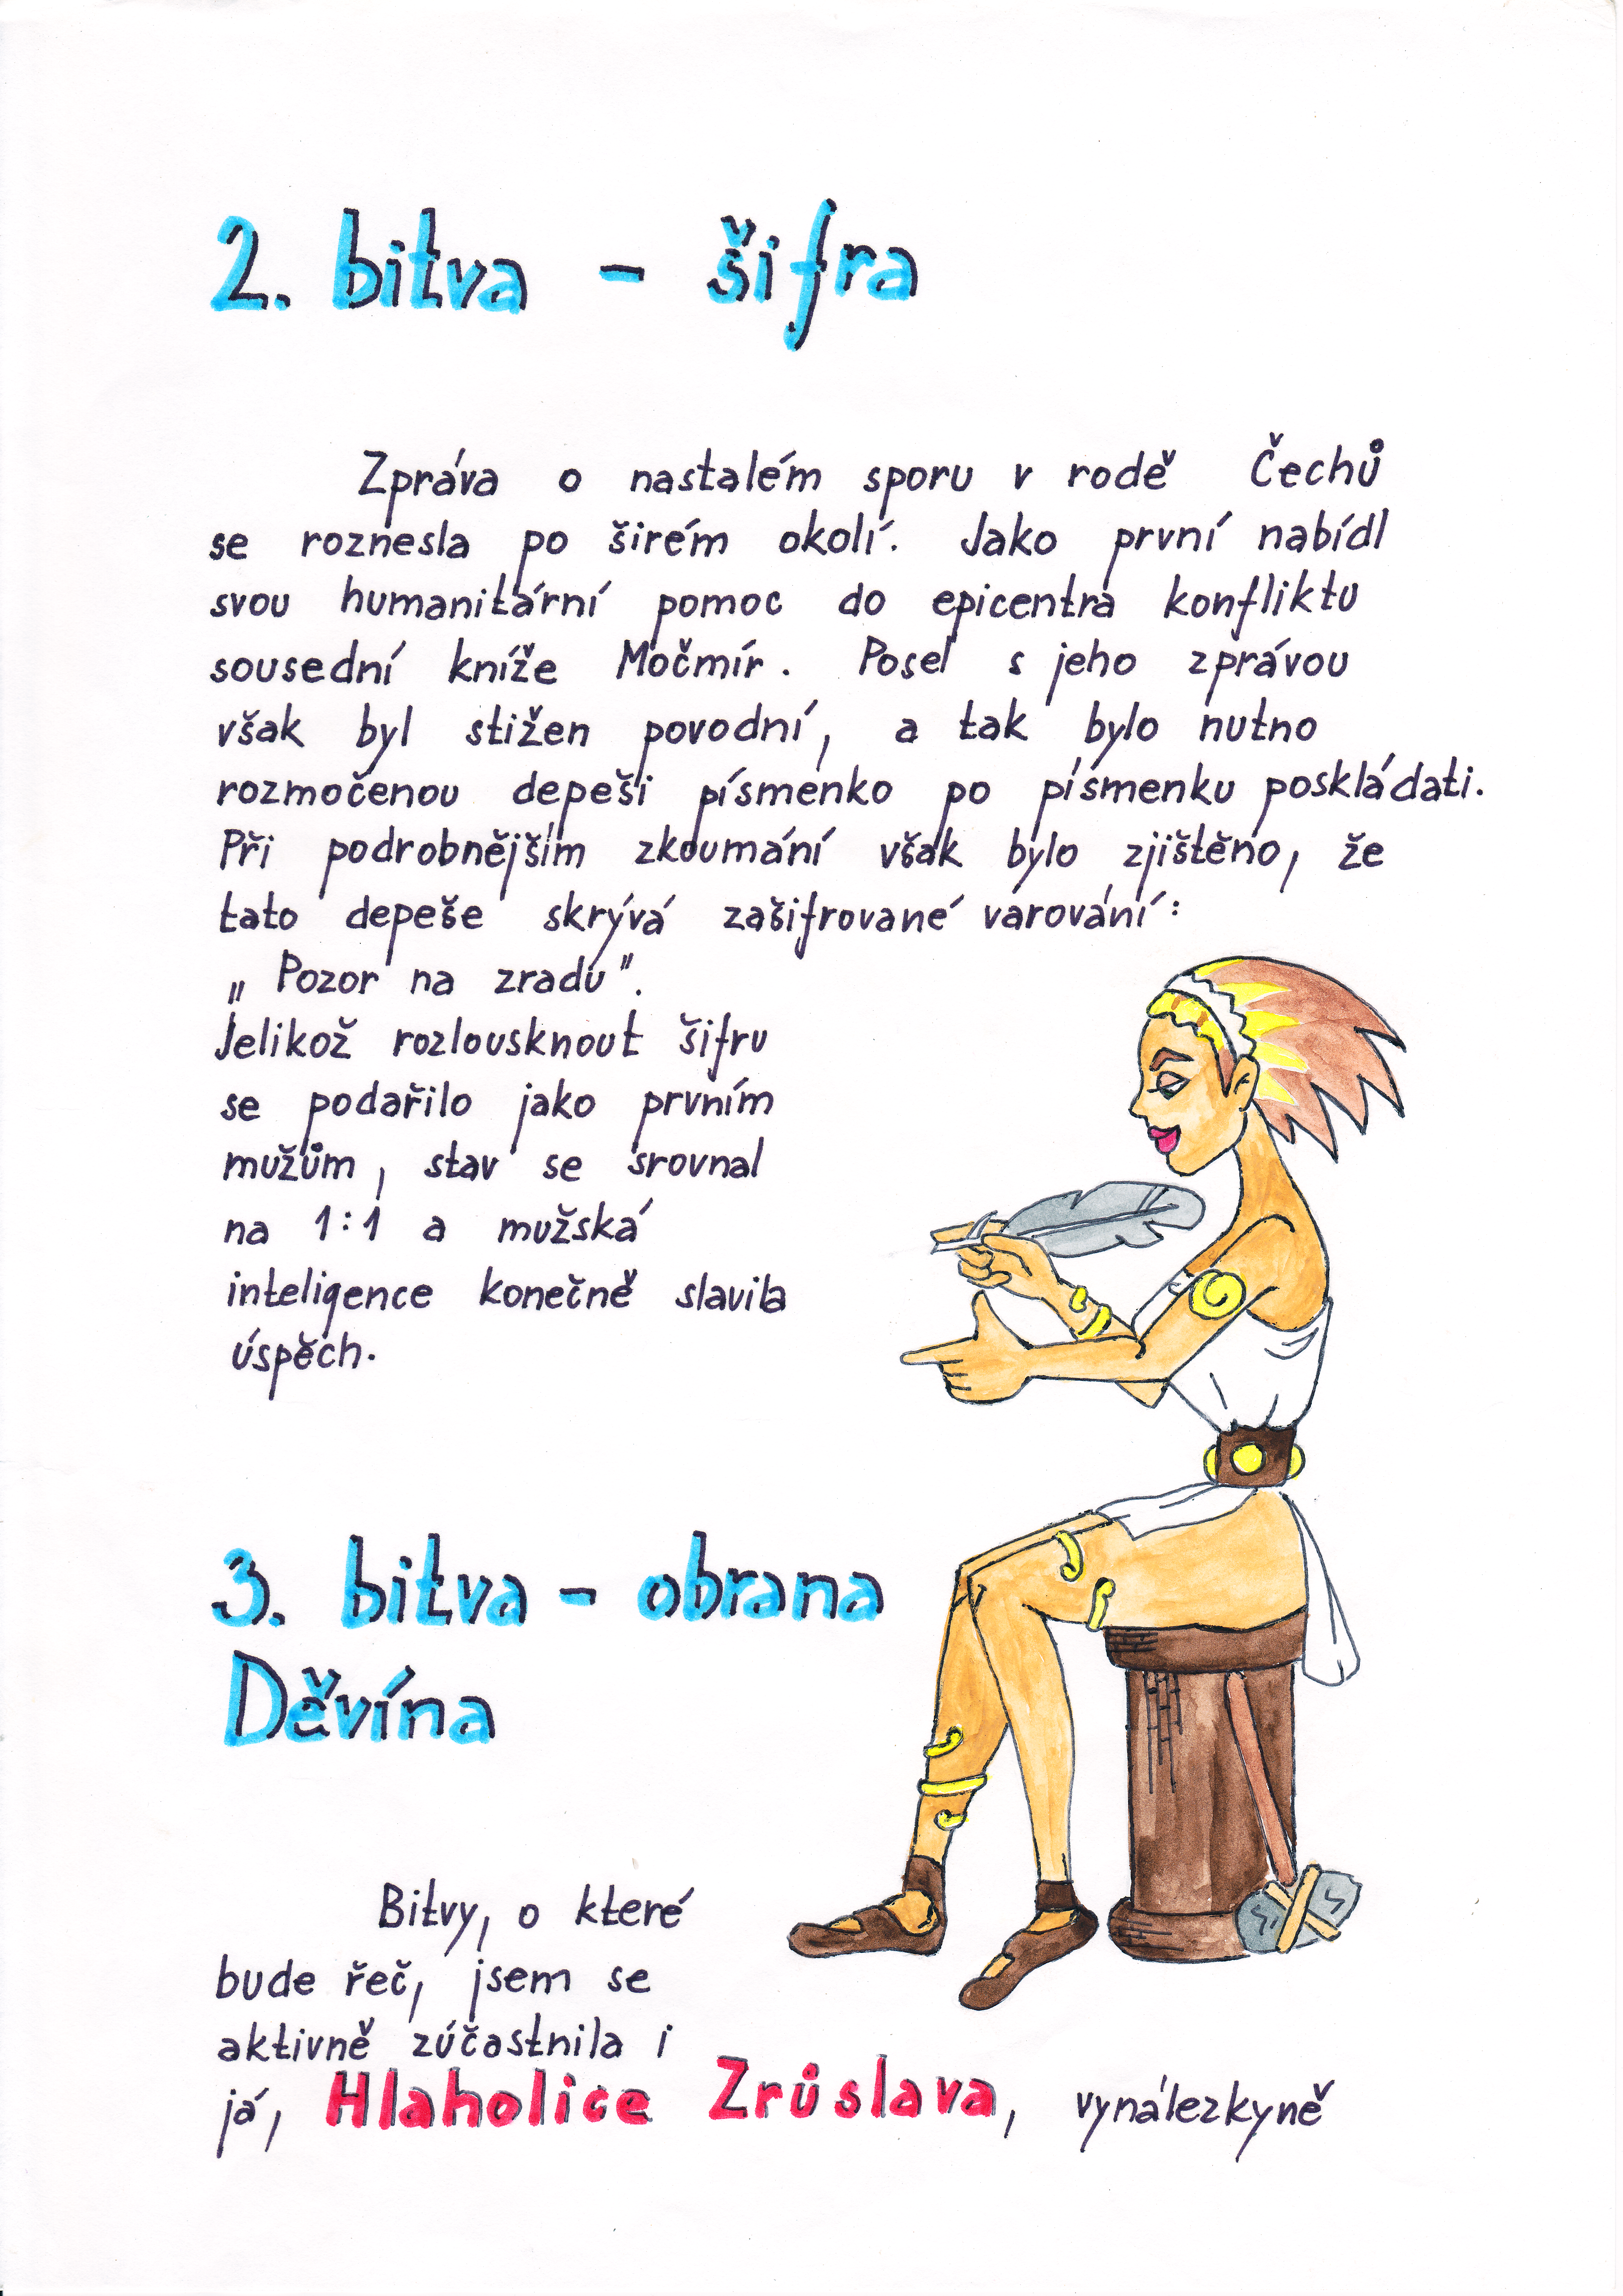 2. bitva - šifra
Zpráva o nastalém sporu v rodě Čechů
se roznesla po širém okolí. Jako první nabídl
svou humanitární pomoc do epicentra konfliktu
sousední kníže Močmír. Posel s jeho zprávou
však byl stižen povodní, a tak bylo nutno
rozmočenou depeši písmenko po písmenku poskládati.
Při podrobnějším zkoumání však bylo zjištěno, že
tato depeše skrývá zašifrované varování:
„Pozor na zradu".
Jelikož rozlousknout šifru
se podařilo jako prvním
mužům, stav se srovnal
na 1:1 a mužská
inteligence konečně slavila
úspěch.
3. bitva - obrana
Děvína
Bitvy, o které
bude řeč, jsem se
aktivně zúčastnila i
já, Hlaholice Zrůslava, vynálezkyně